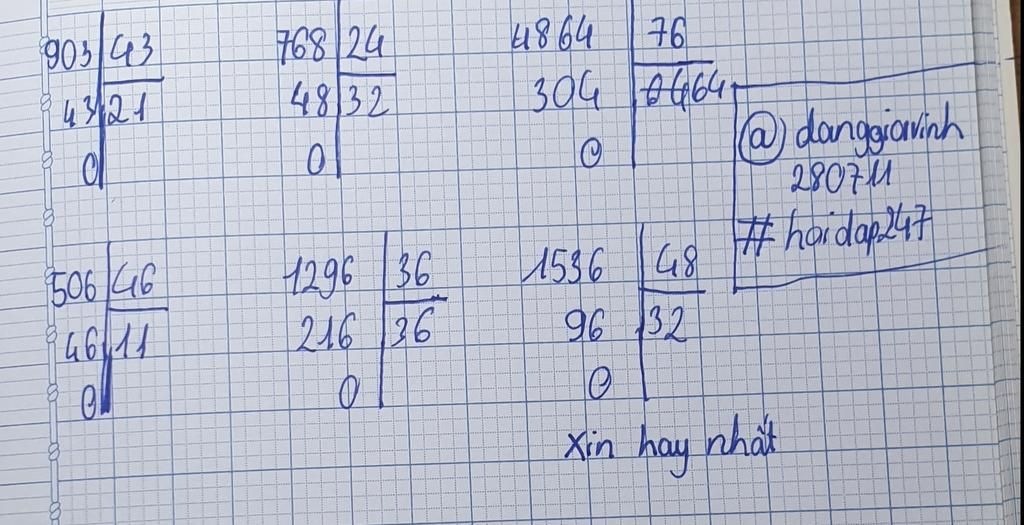 903 43
43 21
0
768 24
48 32
0
4864 76
304 64
0
@danggiavinh
280711
#hoidap247
506 46
46 11
0
1296 36
216 36
0
1536 48
96 32
0
xin hay nhất